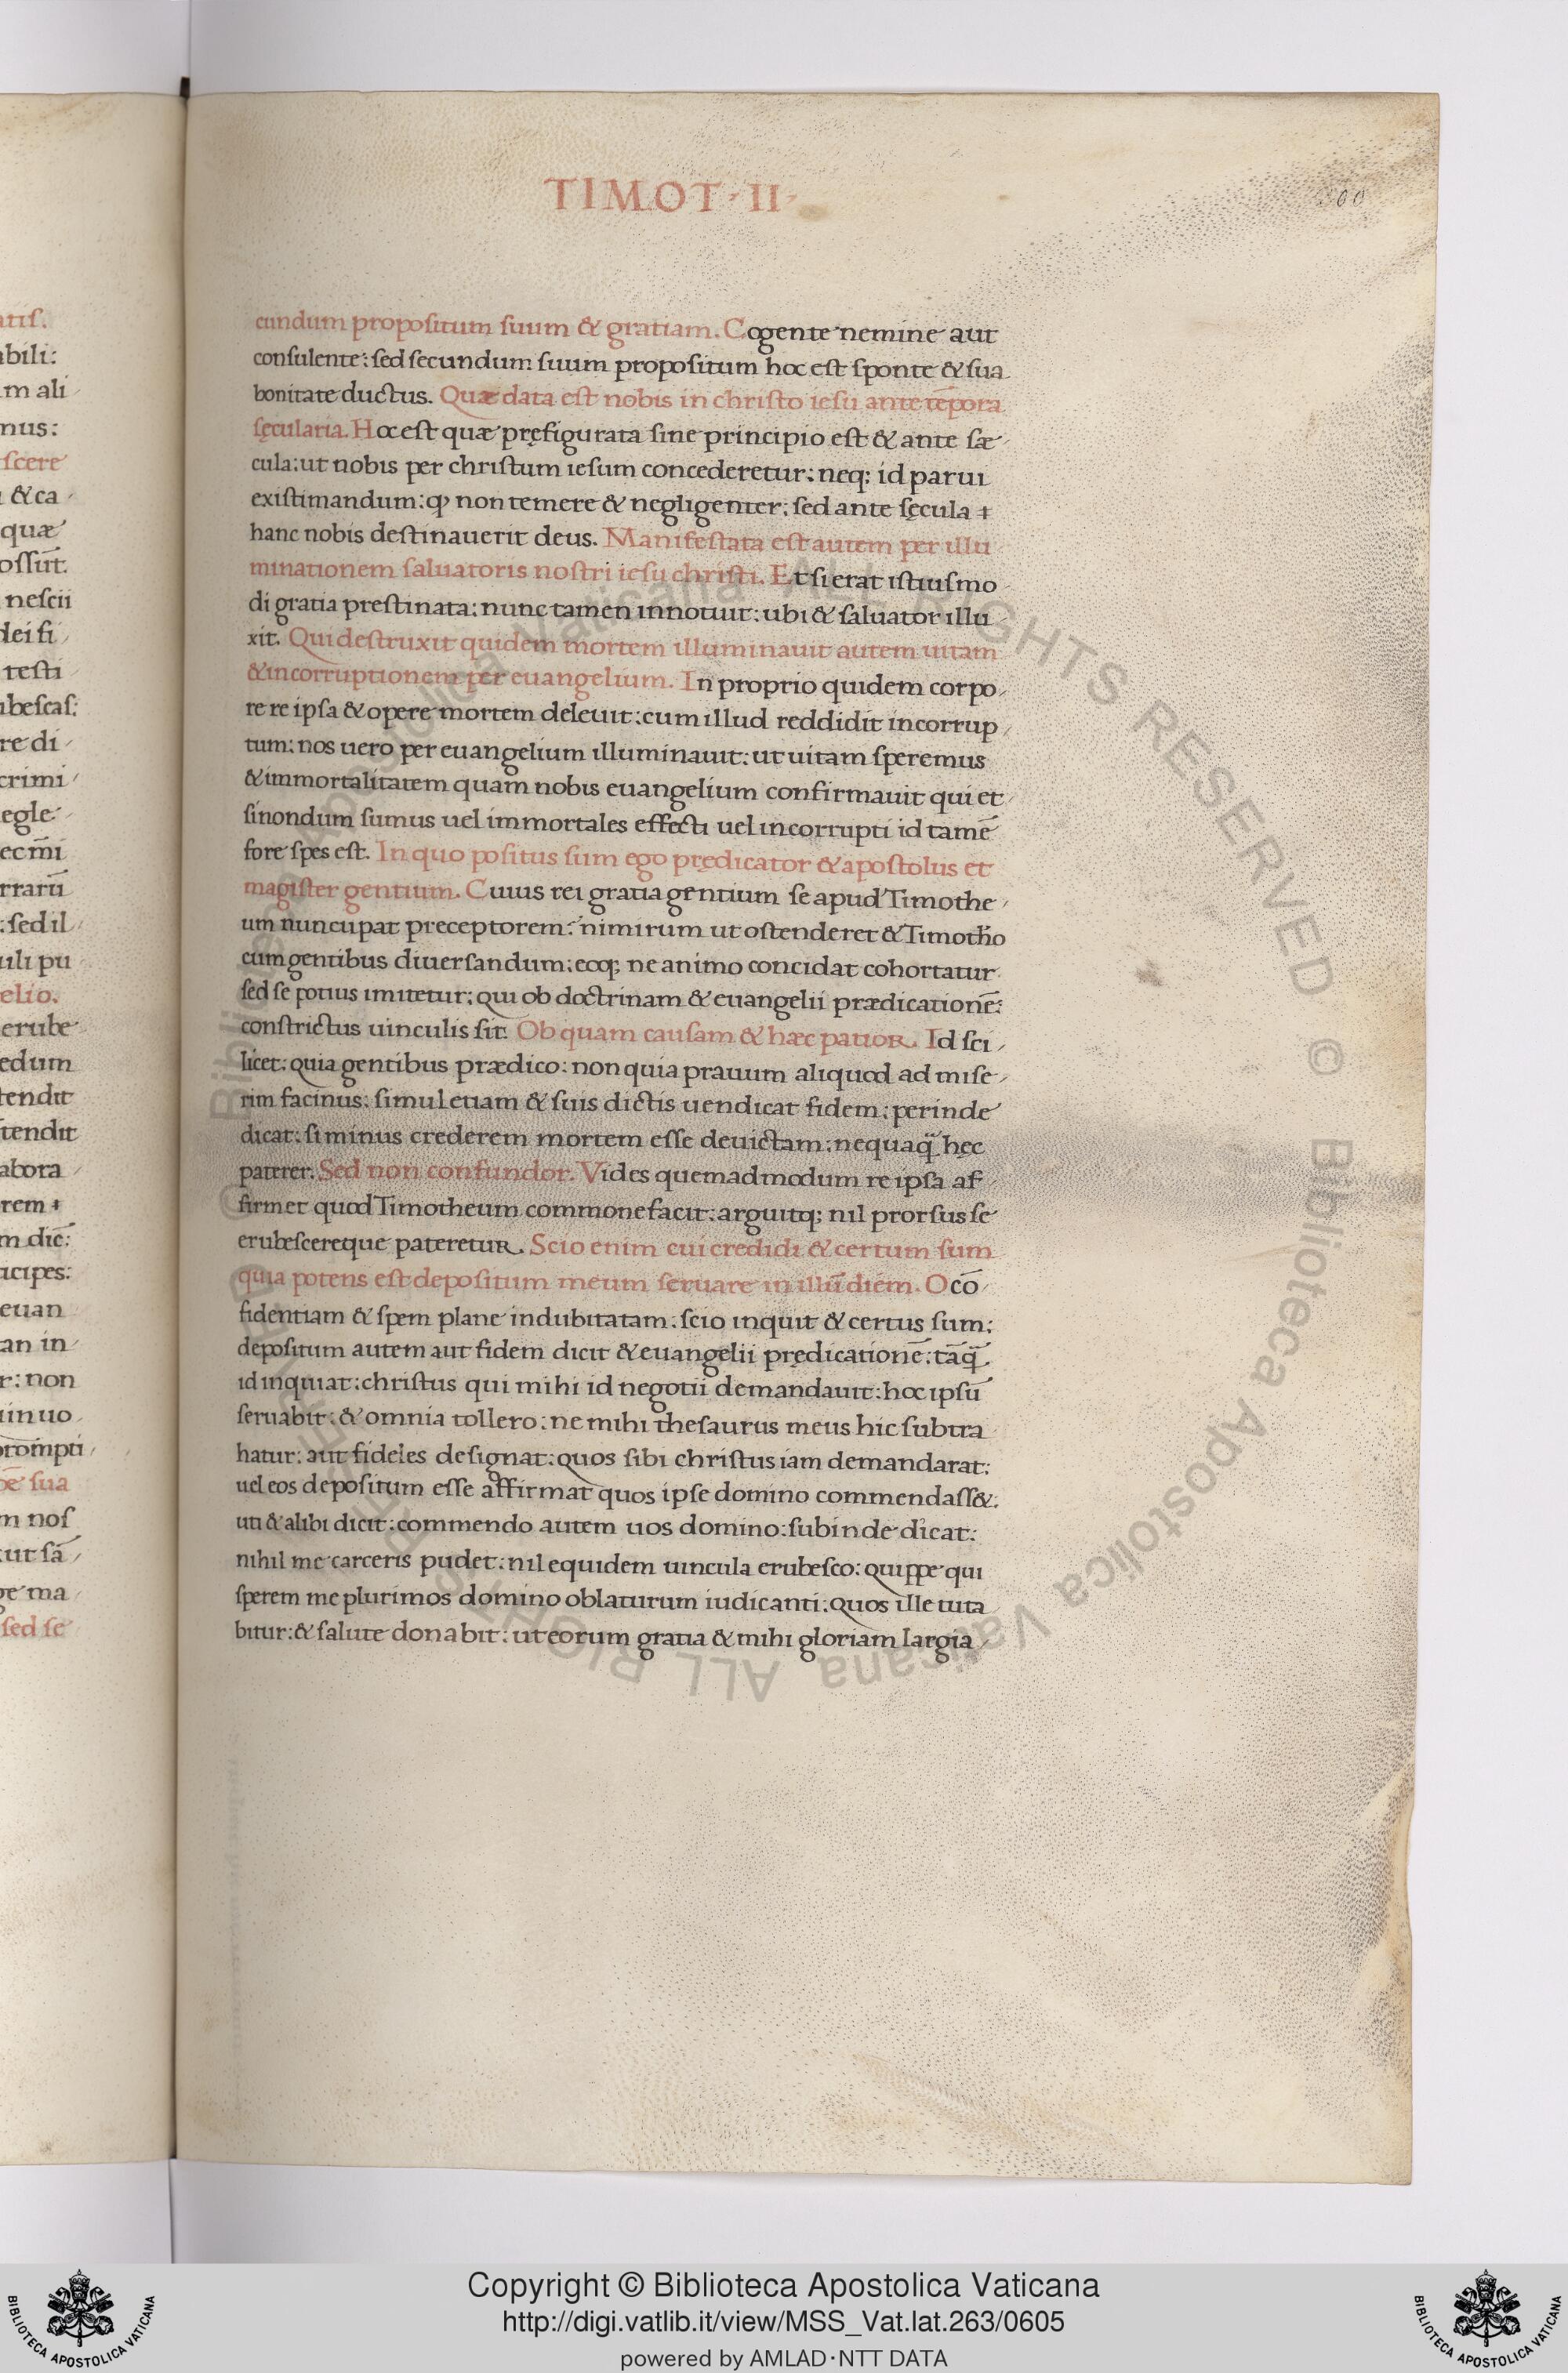 TIMOT · II ·
cundum propositum suum & gratiam. Cogente nemine aut
consulente: sed secundum suum propositum hoc est sponte & sua
bonitate ductus. Quæ data est nobis in christo iesu ante tēpora
sęcularia. Hoc est quæ pręfigurata sine principio est & ante sæ
cula: ut nobis per christum iesum concederetur: neq; id parui
existimandum: ꝙ non temere & negligenter: sed ante sęcula
hanc nobis destinauerit deus. Manifestata est autem per illu
minationem saluatoris nostri iesu christi. Et si erat istiusmo
di gratia prestinata: nunc tamen innotuit: ubi & saluator illu
xit. Qui destruxit quidem mortem illuminauit autem uitam
& incorruptionem per euangelium. In proprio quidem corpo
re re ipsa & opere mortem deleuit: cum illud reddidit incorrup
tum: nos uero per euangelium illuminauit: ut uitam speremus
& immortalitatem quam nobis euangelium confirmauit qui et
si nondum sumus uel immortales effecti uel incorrupti id tamē
fore spes est. In quo positus sum ego prędicator & apostolus et
magister gentium. Cuius rei gratia gentium se apud Timothe
um nuncupat preceptorem: nimirum ut ostenderet & Timotho
cum gentibus diuersandum: eoq; ne animo concidat cohortatur
sed se potius imitetur: qui ob doctrinam & euangelii prædicationē:
constrictus uinculis sit. Ob quam causam & hæc patior. Id sci
licet: quia gentibus prædico: non quia prauum aliquod admise
rim facinus: simul etiam & suis dictis uendicat fidem: perinde
dicat: si minus crederem mortem esse deuictam: nequaq̄ hęc
paterer. Sed non confundor. Vides quemadmodum re ipsa af
firmet quod Timotheum commonefacit: arguitq; nil prorsus se
erubescereque pateretur. Scio enim cui credidi & certum sum
quia potens est depositum meum seruare in illū diem. O cō
fidentiam & spem plane indubitatam: scio inquit & certus sum:
depositum autem aut fidem dicit & euangelii prędicationē: tāq̄
id inquiat: christus qui mihi id negotii demandauit: hoc ipsū
seruabit: & omnia tollero: ne mihi thesaurus meus hic subtra
hatur: aut fideles designat: quos sibi christus iam demandarat:
uel eos depositum esse affirmat quos ipse domino commendass&:
uti & alibi dicit: commendo autem uos domino: subinde dicat:
nihil me carceris pudet: nil equidem uincula erubesco: quippe qui
sperem me plurimos domino oblaturum iudicanti: quos ille tuta
bitur: & salute donabit: ut eorum gratia & mihi gloriam largia
atis.
abili:
m ali
mus:
scere
& ca
quæ
ossūt.
nescii
dei fi
testi
ubescas:
re di
crimi
egle
ec mi
rrarū
: sed il
uli pu
elio.
erube
edum
tendit
tendit
abora
rem
m dic̄:
icipes:
euan
an in
r: non
uinuo
prompti
sua
m nos
ut sā
ge ma
sed se
Copyright © Biblioteca Apostolica Vaticana
http://digi.vatlib.it/view/MSS_Vat.lat.263/0605
powered by AMLAD·NTT DATA
BIBLIOTECA APOSTOLICA VATICANA
BIBLIOTECA APOSTOLICA VATICANA
© Biblioteca Apostolica Vaticana ALL RIGHTS RESERVED